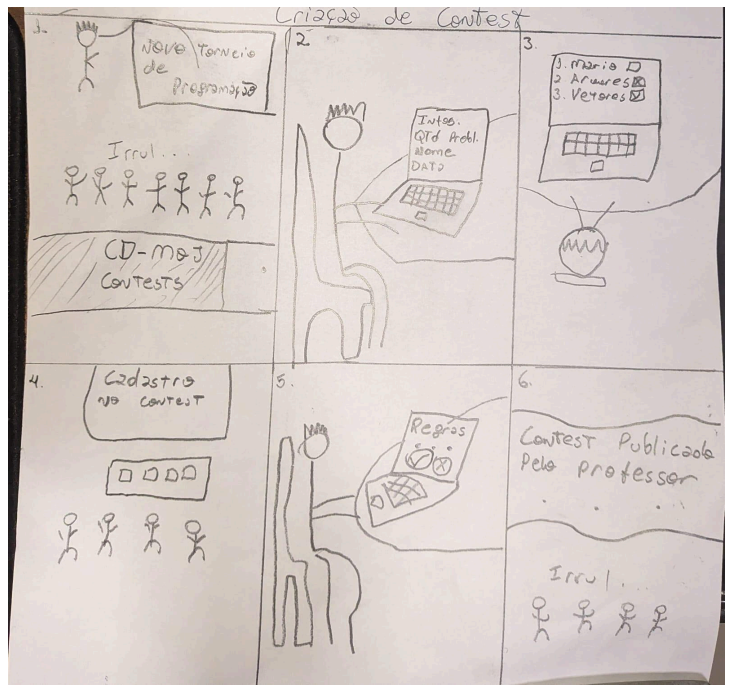 Criação de Contest
1.
Novo Torneio
de
Programação
Irrul...
CD-MOJ
CONTESTS
2.
Infos.
QTd Probl.
Nome
DATA
3.
1. Mario
2 Arvores
3. Vetores
4.
Cadastro
no contest
5.
Regras
6.
Contest Publicado
Pelo Professor
Irrul...